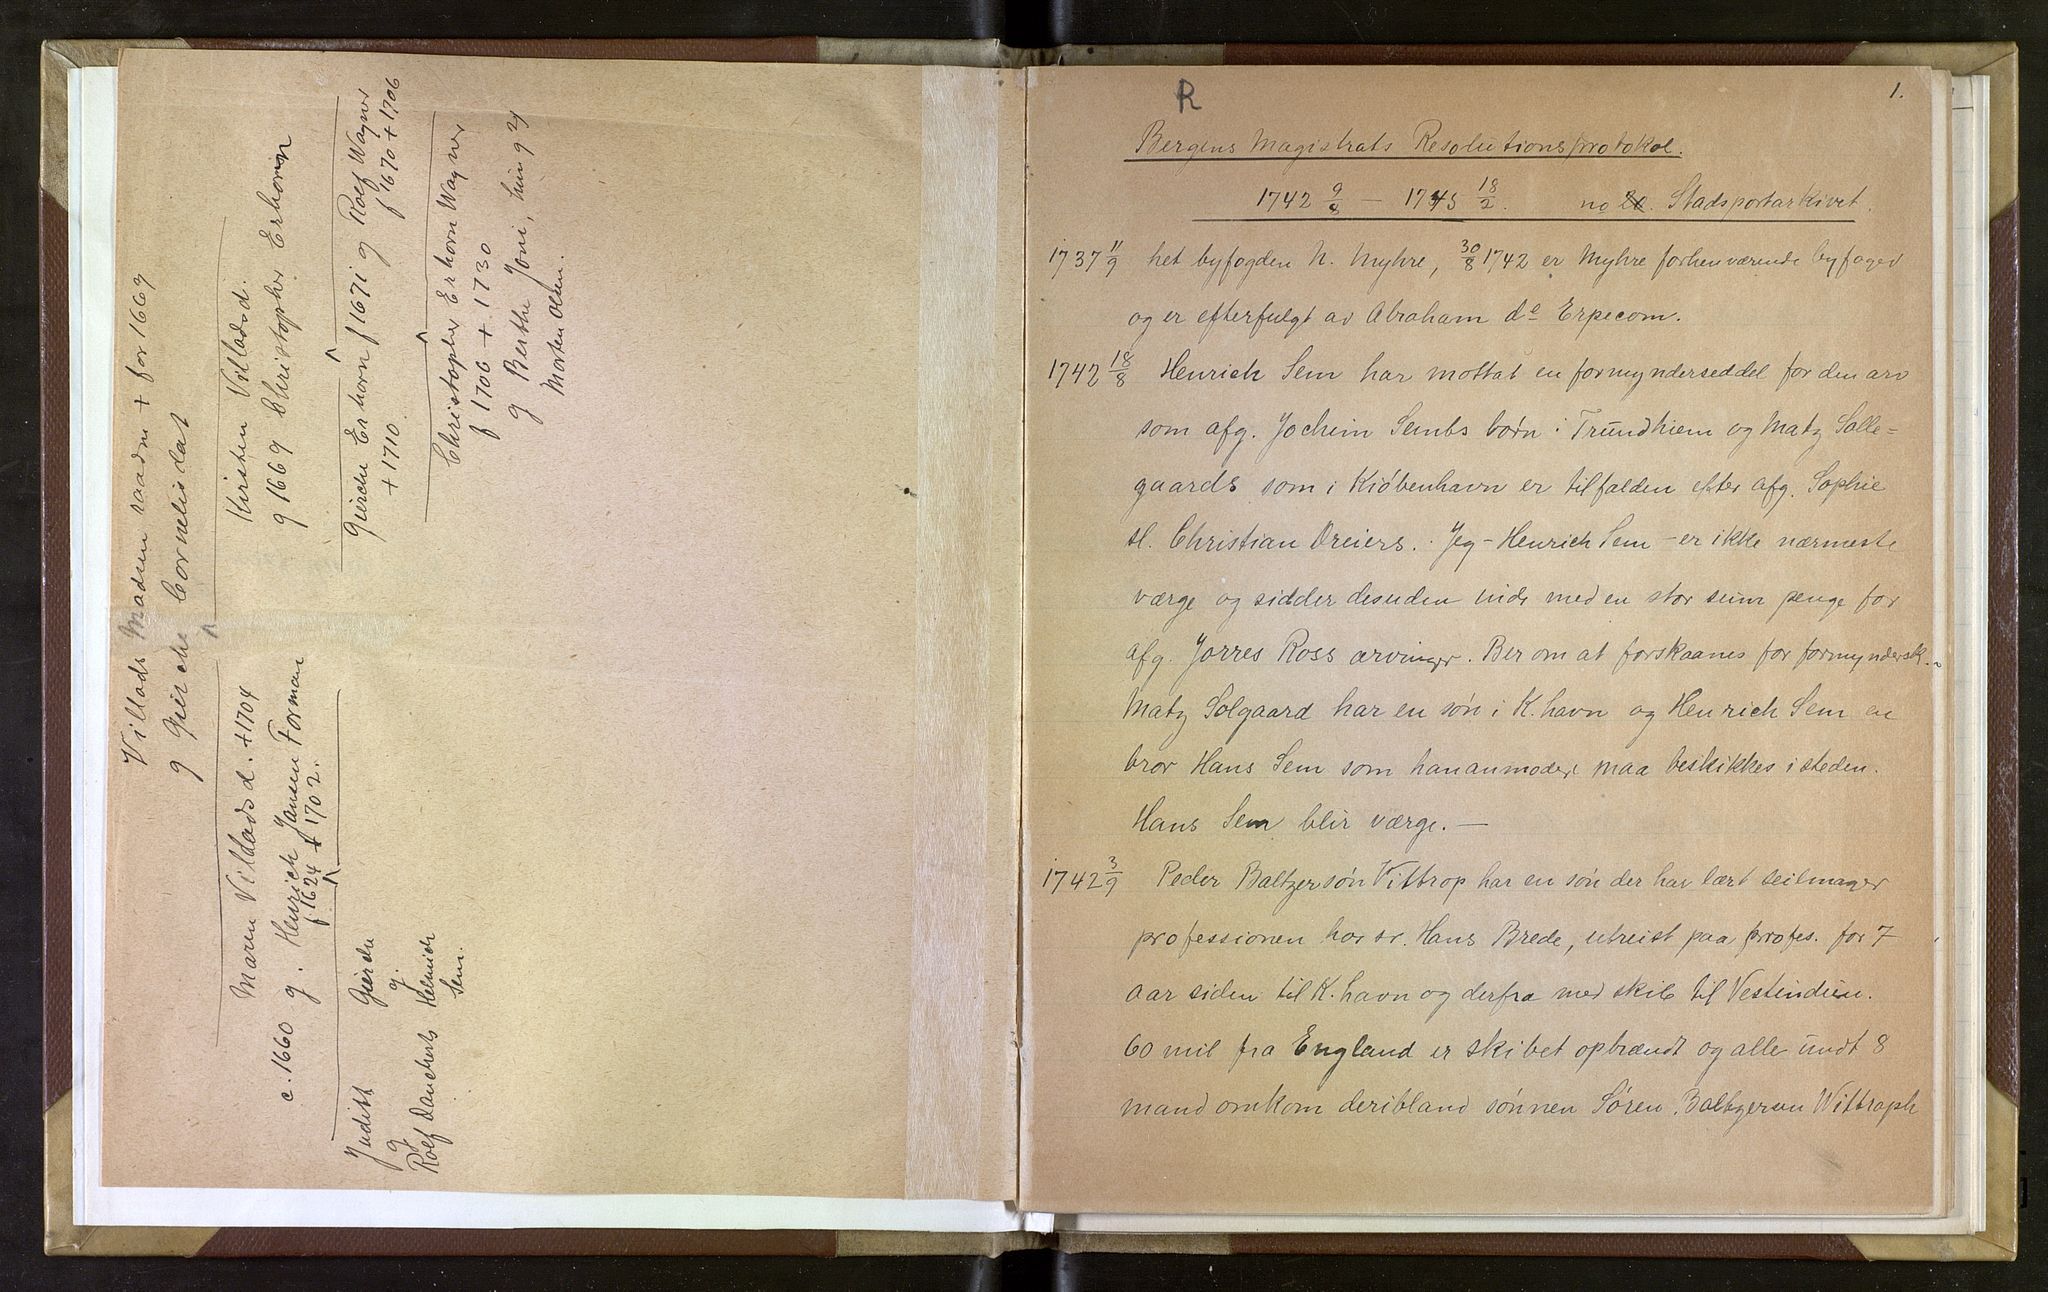 Villads Madsen raadm + før 1669
g Gierche Cornelisdat
Maren Villadsd. +1704
c. 1660 g. Henrich Jansen Forman
f 1624 + 1702.
Kirsten Villadsd.
g 1669 Christopher Erhorn
Judith
g
Roef Dancherts
Gierche
g.
Helmich
Sem.
Gierche Erhorn f 1671 g Roef Wagner
+ 1710
f 1670 + 1706
Christopher Erhorn Wagner
f 1706 + 1730
g Berthe Joni, hun g 2)
Morten Olsen.
R
1.
Bergens Magistrats Resolutionsprotokol.
1742 9/8 — 1745 18/2. no Stadsportarkivet.
1737 11/9 het byfogden N. Myhre, 30/8 1742 er Myhre forhenværende byfoged
og er efterfulgt av Abraham de Erpecom.
1742 18/8 Henrich Sem har mottat en formynderseddel for den arv
som afg. Jochim Sembs børn i Trundhiem og Matz Solle=
gaards som i Kiøbenhavn er tilfalden efter afg. Sophie
sl. Christian Dreiers. Jeg - Henrich Sem - er ikke nærmeste
værge og sidder desuden inde med en stor sum penge for
afg. Jorres Ross arvinger. Ber om at forskaanes for formyndersk.
Matz Solgaard har en søn i K.havn og Henrich Sem en
bror Hans Sem som han anmoder maa beskikkes isteden.
Hans Sem blir værge. —
1742 3/9 Peder Baltzersøn Vittrop har en søn der har lært seilmager
professionen hos sr. Hans Brede, utreist paa profes. for 7
aar siden til K.havn og derfra med skib til Vestindien.
60 mil fra England er skibet opbrændt og alle undt 8
mand omkom deribland sønnen Søren Baltzersen Wittroph